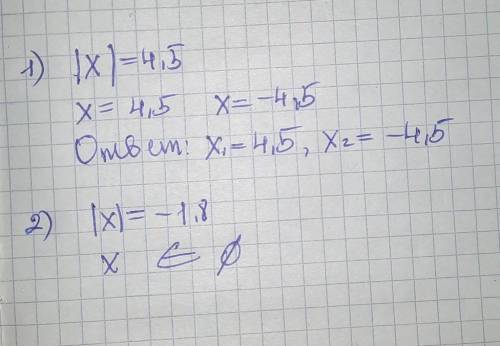 1) |x|=4,5
x= 4,5 x=-4,5
Ответ: x₁=4,5, x₂= -4,5
2) |x|= -1,8
x ∈ ∅